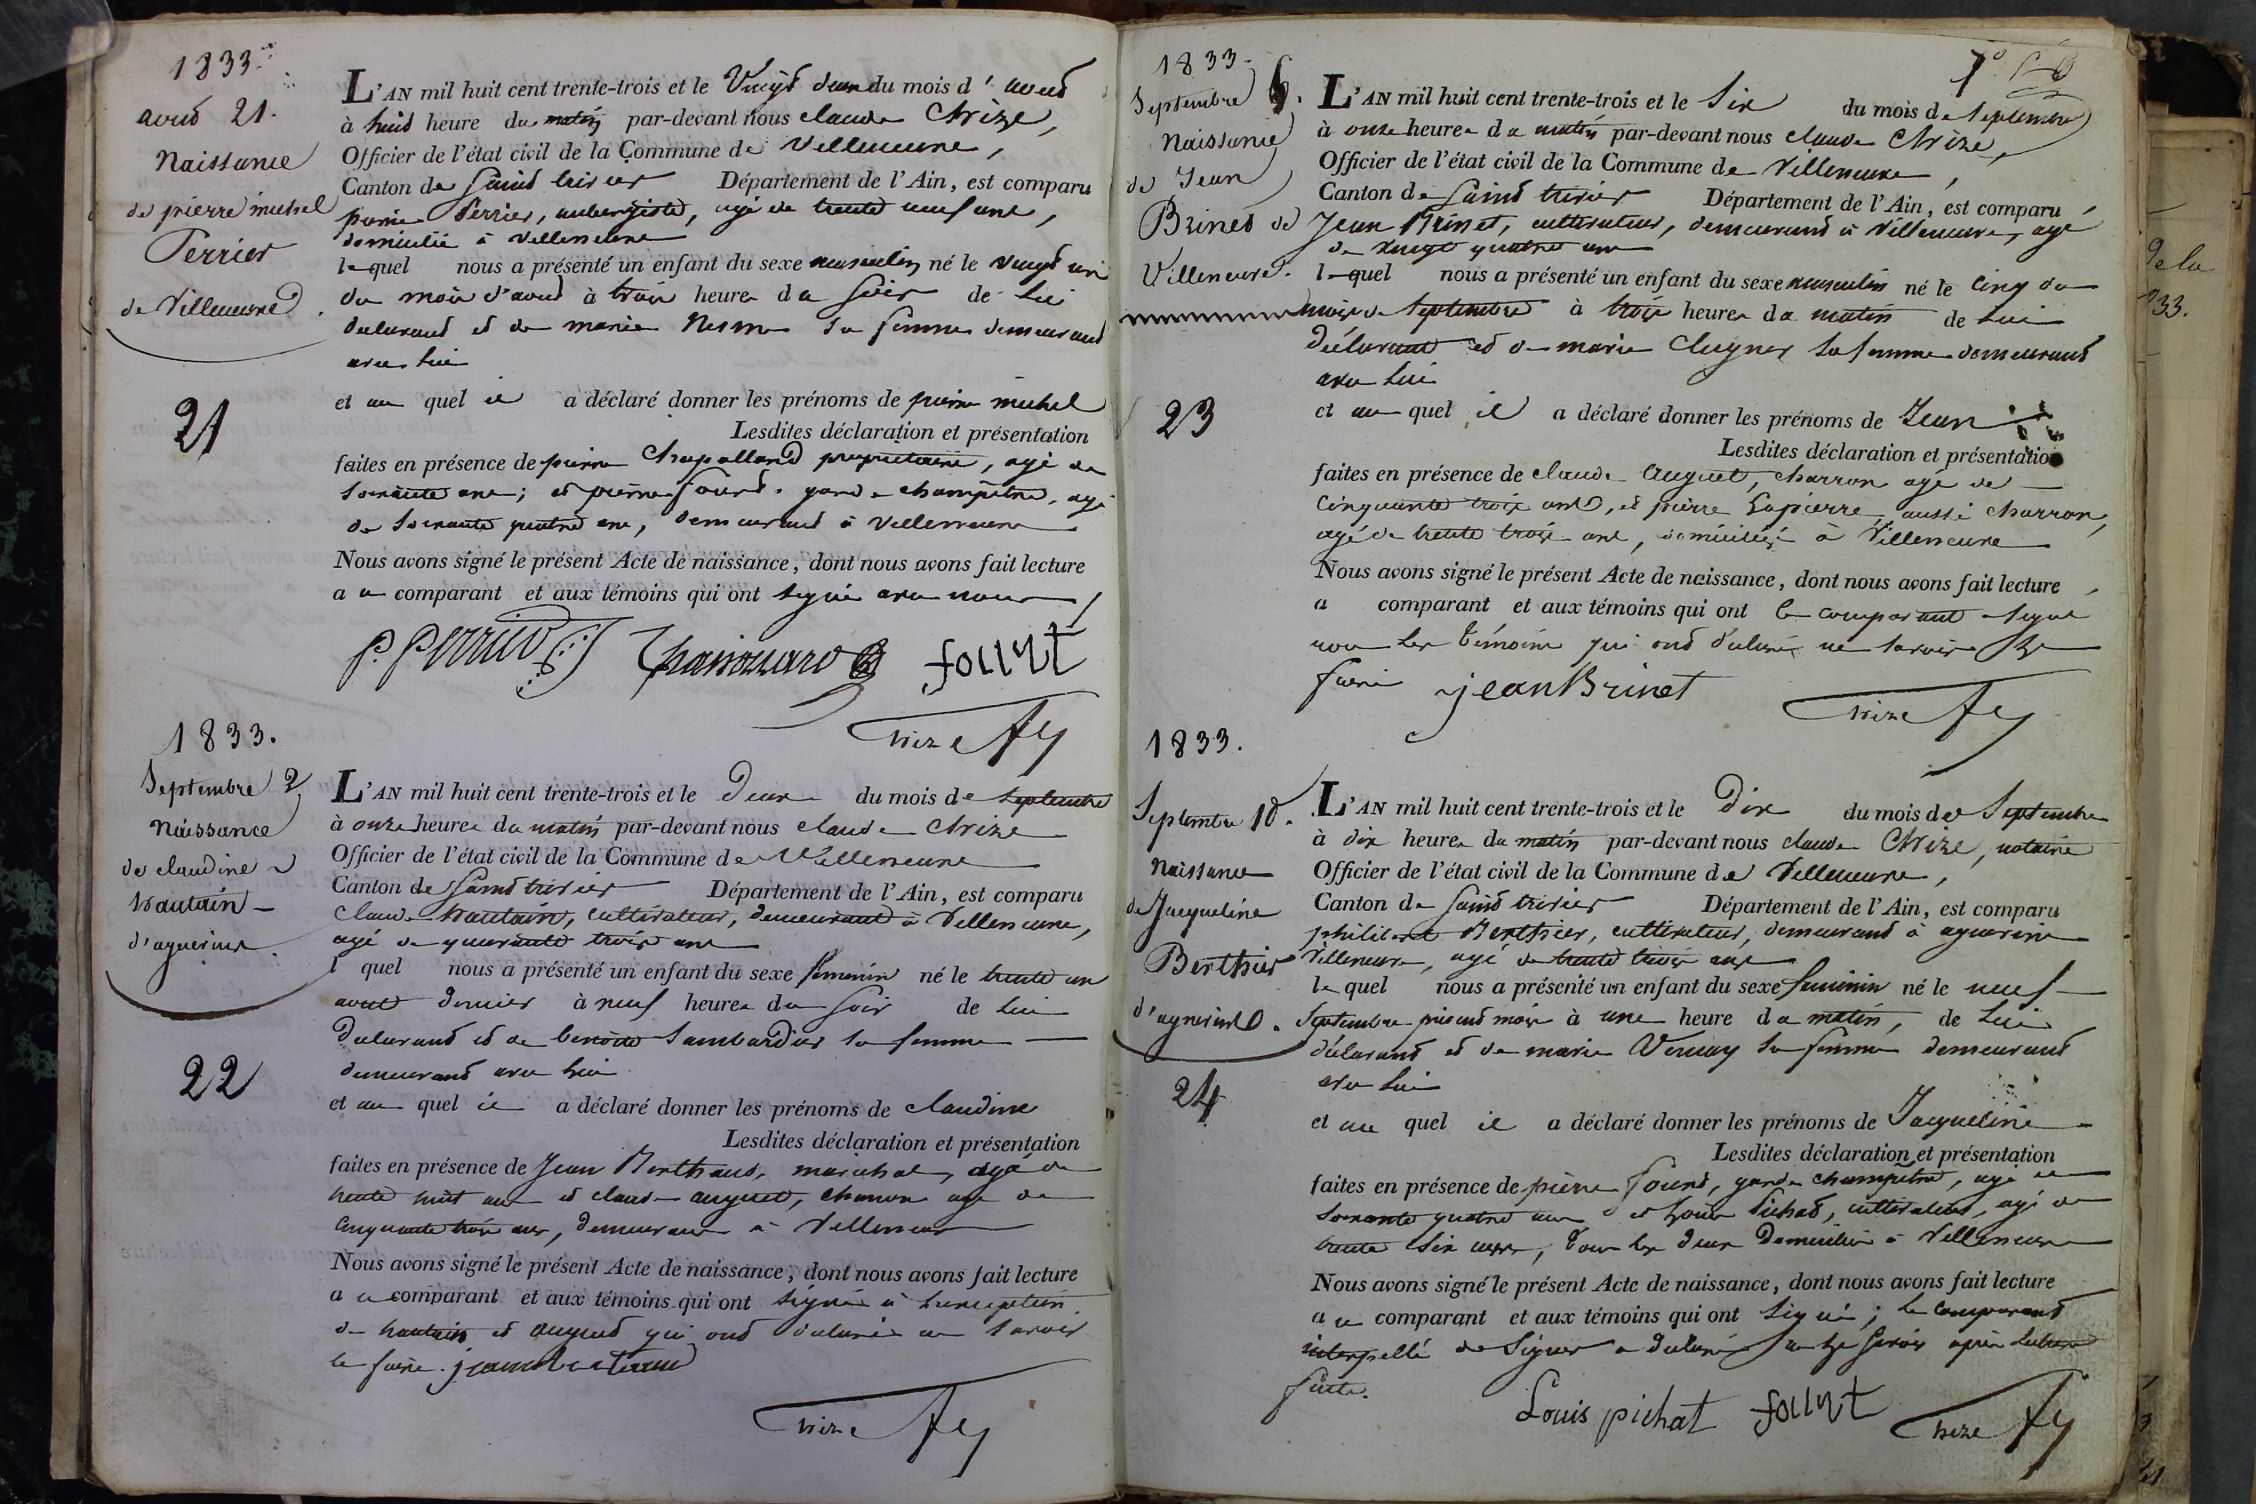 1833.
aoud 21.
Naissance
de pierre michel
Perrier
de Villeneuve
21
L'AN mil huit cent trente-trois et le Vingt deux du mois d'aoud
à huid heure du matin par-devant nous claude
Officier de l'état civil de la Commune de Villeneuve,
Canton de Saind trivier Département de l'Ain, est comparu
pierre Perrier, aubergiste, agé de trente neuf ans,
domicilié à Villeneuve
lequel nous a présenté un enfant du sexe masculin né le vingt un
du mois d'aoud à trois heures du soir de lui
déclarand et de marie sa femme demeurand
avec lui
et au quel il a déclaré donner les prénoms de pierre michel
Lesdites déclaration et présentation
faites en présence de pierre propriétaire, agé de
soixante ans; et pierre garde champêtre, agé
de soixante quatre ans, demeurand à Villeneuve
Nous avons signé le présent Acte de naissance, dont nous avons fait lecture
au comparant et aux témoins qui ont signé avec nous
P. Perrier
1833.
Septembre 2
Naissance
de claudine
trautain
d'agnerins.
22
L'AN mil huit cent trente-trois et le Deux du mois de Septembre
à onze heures du matin par-devant nous claude
Officier de l'état civil de la Commune de Villeneuve
Canton de Saind trivier Département de l'Ain, est comparu
Claude trautain, cultivateur, demeurant à Villeneuve,
agé de quarante trois ans
l quel nous a présenté un enfant du sexe feminin né le trente un
aout dernier à neuf heures du soir de lui
Déclarand et de benoite Sambardier sa femme
demeurand avec lui
et au quel il a déclaré donner les prénoms de claudine
Lesdites déclaration et présentation
faites en présence de Jean maréchal, agé de
trente huit ans et claude auguet, charron agé de
cinquante trois ans, demeurant à Villeneuve
Nous avons signé le présent Acte de naissance, dont nous avons fait lecture
au comparant et aux témoins qui ont signé à l'exception
de trautain et auguet qui ond déclaré ne savoir
le faire.
1833.
Septembre 6.
Naissance
de Jean
Brinet de
Villeneuve.
23
L'AN mil huit cent trente-trois et le Six du mois de Septembre
à onze heures du matin par-devant nous claude
Officier de l'état civil de la Commune de Villeneuve,
Canton de Saind trivier Département de l'Ain, est comparu
Jean Brinet, cultivateur, demeurand à Villeneuve, agé
de vingt quatre ans
lequel nous a présenté un enfant du sexe masculin né le cinq du
mois de Septembre à trois heures du matin de lui
déclarant et de marie sa femme demeurand
avec lui
et au quel il a déclaré donner les prénoms de Jean
Lesdites déclaration et présentation
faites en présence de claude auguet, charron agé de
cinquante trois ans, et pierre Lapierre aussi charron,
agé de trente trois ans, domiciliés à Villeneuve
Nous avons signé le présent Acte de naissance, dont nous avons fait lecture
a comparant et aux témoins qui ont le comparant signé
non les témoins qui ond déclaré ne savoir le
faire
jean Brinet
1833.
Septembre 10.
Naissance
de Jacqueline
Berthier
d'agnerins.
24
L'AN mil huit cent trente-trois et le Dix du mois de Septembre
à dix heures du matin par-devant nous claude notaire
Officier de l'état civil de la Commune de Villeneuve,
Canton de Saind trivier Département de l'Ain, est comparu
philibert Berthier, cultivateur, demeurand à agnerins
Villeneuve, agé de trente trois ans
lequel nous a présenté un enfant du sexe feminin né le neuf
Septembre présend mois à une heure du matin, de lui
déclarand et de marie Vernay sa femme demeurand
avec lui
et au quel il a déclaré donner les prénoms de Jacqueline
Lesdites déclaration et présentation
faites en présence de pierre garde champêtre, agé de
soixante quatre ans et Louis Pichat, cultivateur, agé de
trente six ans, tous les deux Domiciliés à Villeneuve
Nous avons signé le présent Acte de naissance, dont nous avons fait lecture
au comparant et aux témoins qui ont signé; le comparand
interpellé de Signer a déclaré ne le savoir après lecture
faite.
Louis pichat